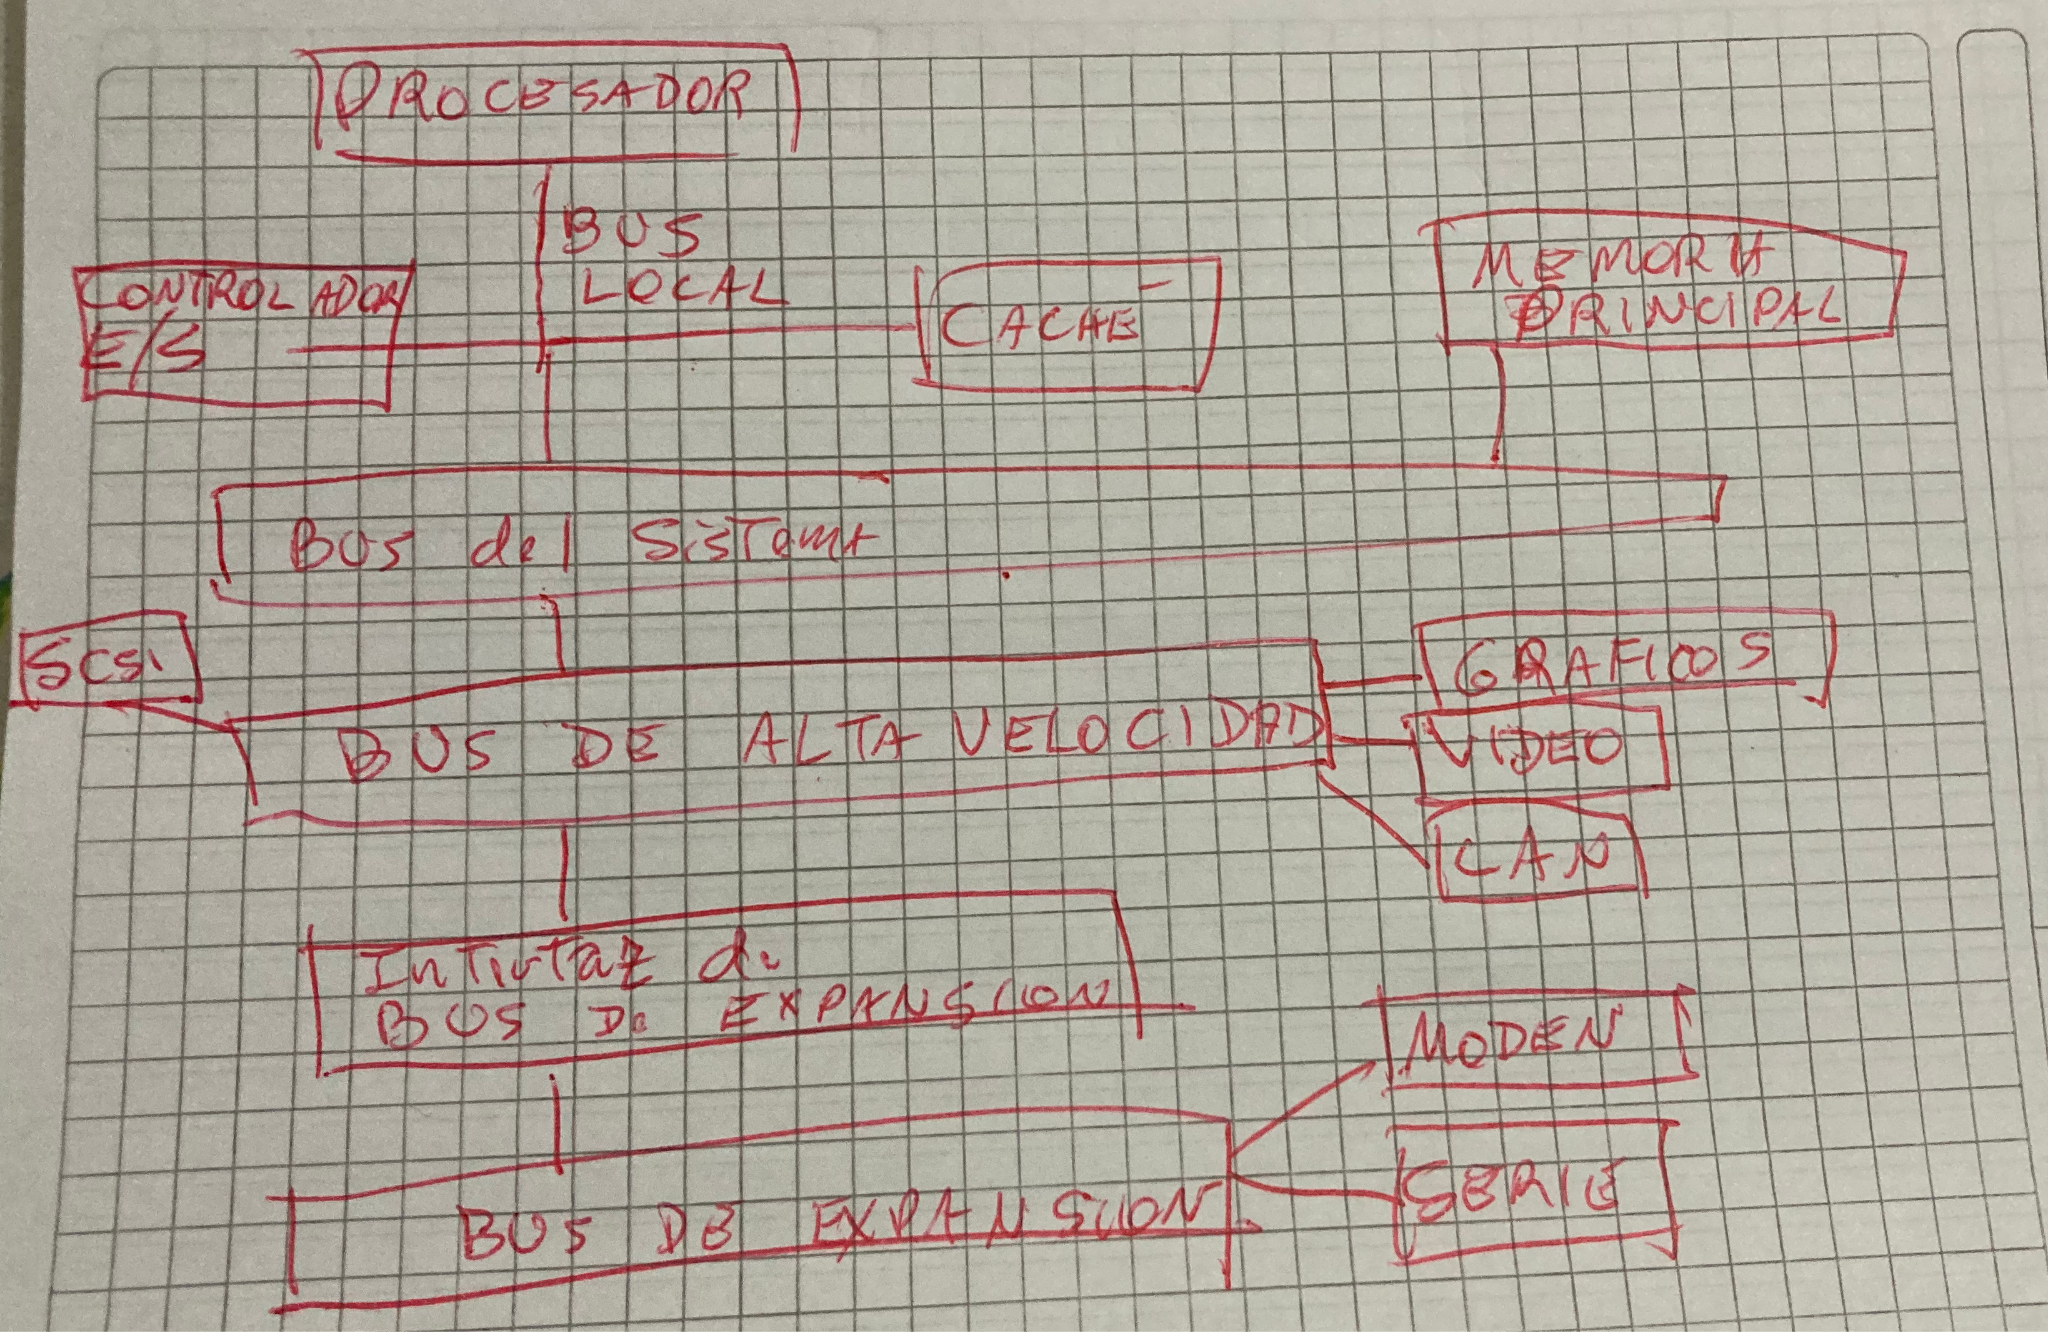 PROCESADOR
BUS
LOCAL
CONTROLADOR
E/S
CACHE
MEMORIA
PRINCIPAL
BUS del SisTema
SCSi
BUS DE ALTA VELOCIDAD
GRAFICOS
VIDEO
CAN
de
BUS De EXPANSION
MODEN
SERIE
BUS DE EXPANSION